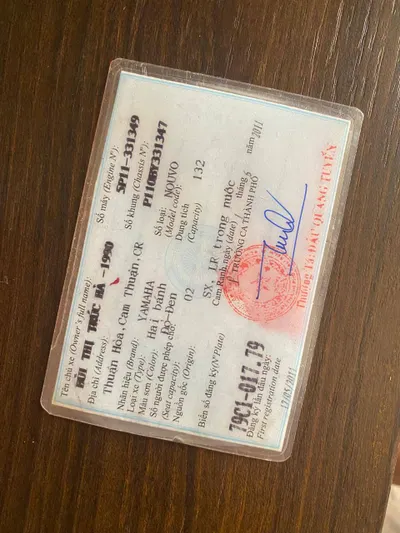 Tên chủ xe (Owner's full name):
BÙI THỊ TRÚC HÀ -1990
Địa chỉ (Address):
Thuận Hòa, Cam Thuận, CR
Nhãn hiệu (Brand): YAMAHA
Loại xe (Type): Hai bánh
Màu sơn (Color): Đỏ-Đen
Số người được phép chở: 02
(Seat capacity):
Nguồn gốc (Origin): SX, LR trong nước
Số máy (Engine N°):
5P11-331349
Số khung (Chassis N°):
331347
Số loại: NOUVO
(Model code):
Dung tích 132
(Capacity)
Cam Ranh, ngày (date) tháng 5 năm 2011
TRƯỞNG CA THÀNH PHỐ
Biển số đăng ký (N°Plate)
79C1-017.79
Đăng ký lần đầu ngày:
First registration date
17/05/2011
Thượng Tá: ĐẬU QUANG TUYẾN